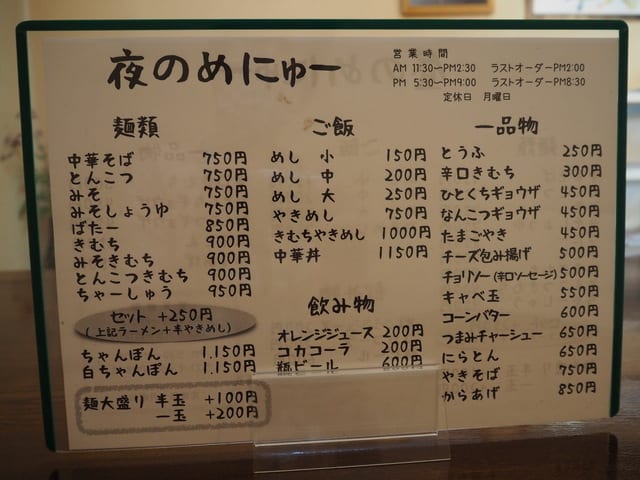 夜のめにゅー
営業時間
AM 11:30〜PM2:30 ラストオーダーPM2:00
PM 5:30〜PM9:00 ラストオーダーPM8:30
定休日 月曜日
麺類
中華そば 750円
とんこつ 750円
みそ 750円
みそしょうゆ 750円
ばたー 850円
きむち 900円
みそきむち 900円
とんこつきむち 900円
ちゃーしゅう 950円
セット +250円
(上記ラーメン+半やきめし)
ちゃんぽん 1.150円
白ちゃんぽん 1.150円
麺大盛り 半玉 +100円
一玉 +200円
ご飯
めし 小 150円
めし 中 200円
めし 大 250円
やきめし 750円
きむちやきめし 1000円
中華丼 1150円
飲み物
オレンジジュース 200円
コカコーラ 200円
瓶ビール 600円
一品物
とうふ 250円
辛口きむち 300円
ひとくちギョウザ 450円
なんこつギョウザ 450円
たまごやき 450円
チーズ包み揚げ 500円
チョリソー(辛口ソーセージ) 500円
キャベ玉 550円
コーンバター 600円
つまみチャーシュー 650円
にらとん 650円
やきそば 750円
からあげ 850円